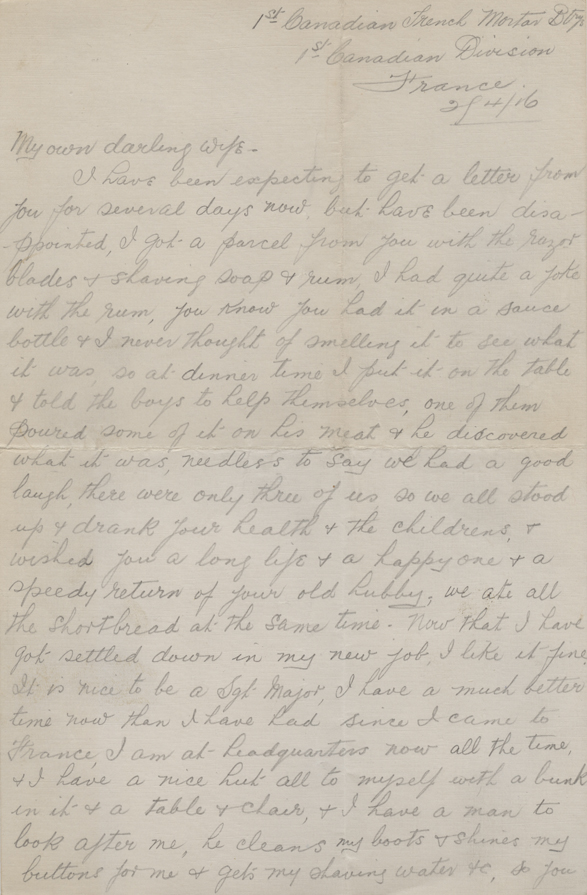 1st Canadian French Mortar Bty
1st Canadian Division
France.
29/4/16
My own darling Wife -
I have been expecting to get a letter from
you for several days now, but have been disa-
-ppointed, I got a parcel from you with the razor
blades & shaving soap & rum, I had quite a joke
with the rum, you know you had it in a sauce
bottle & I never thought of smelling it to see what
it was, so at dinner time I put it on the table
& told the boys to help themselves, one of them
poured some of it on his meat & he discovered
what it was, needless to say we had a good
laugh, there were only three of us so we all stood
up & drank your health & the childrens, &
wished you a long life & a happy one & a
speedy return of your old hubby, we ate all
the shortbread at the same time. Now that I have
got settled down in my new job, I like it fine
It is nice to be a Sgt Major, I have a much better
time now than I have had since I came to
France, I am at headquarters now all the time,
& I have a nice hut all to myself with a bunk
in it & a table & chair, & I have a man to
look after me, he cleans my boots & shines my
buttons for me & gets my shaving water &c, so you